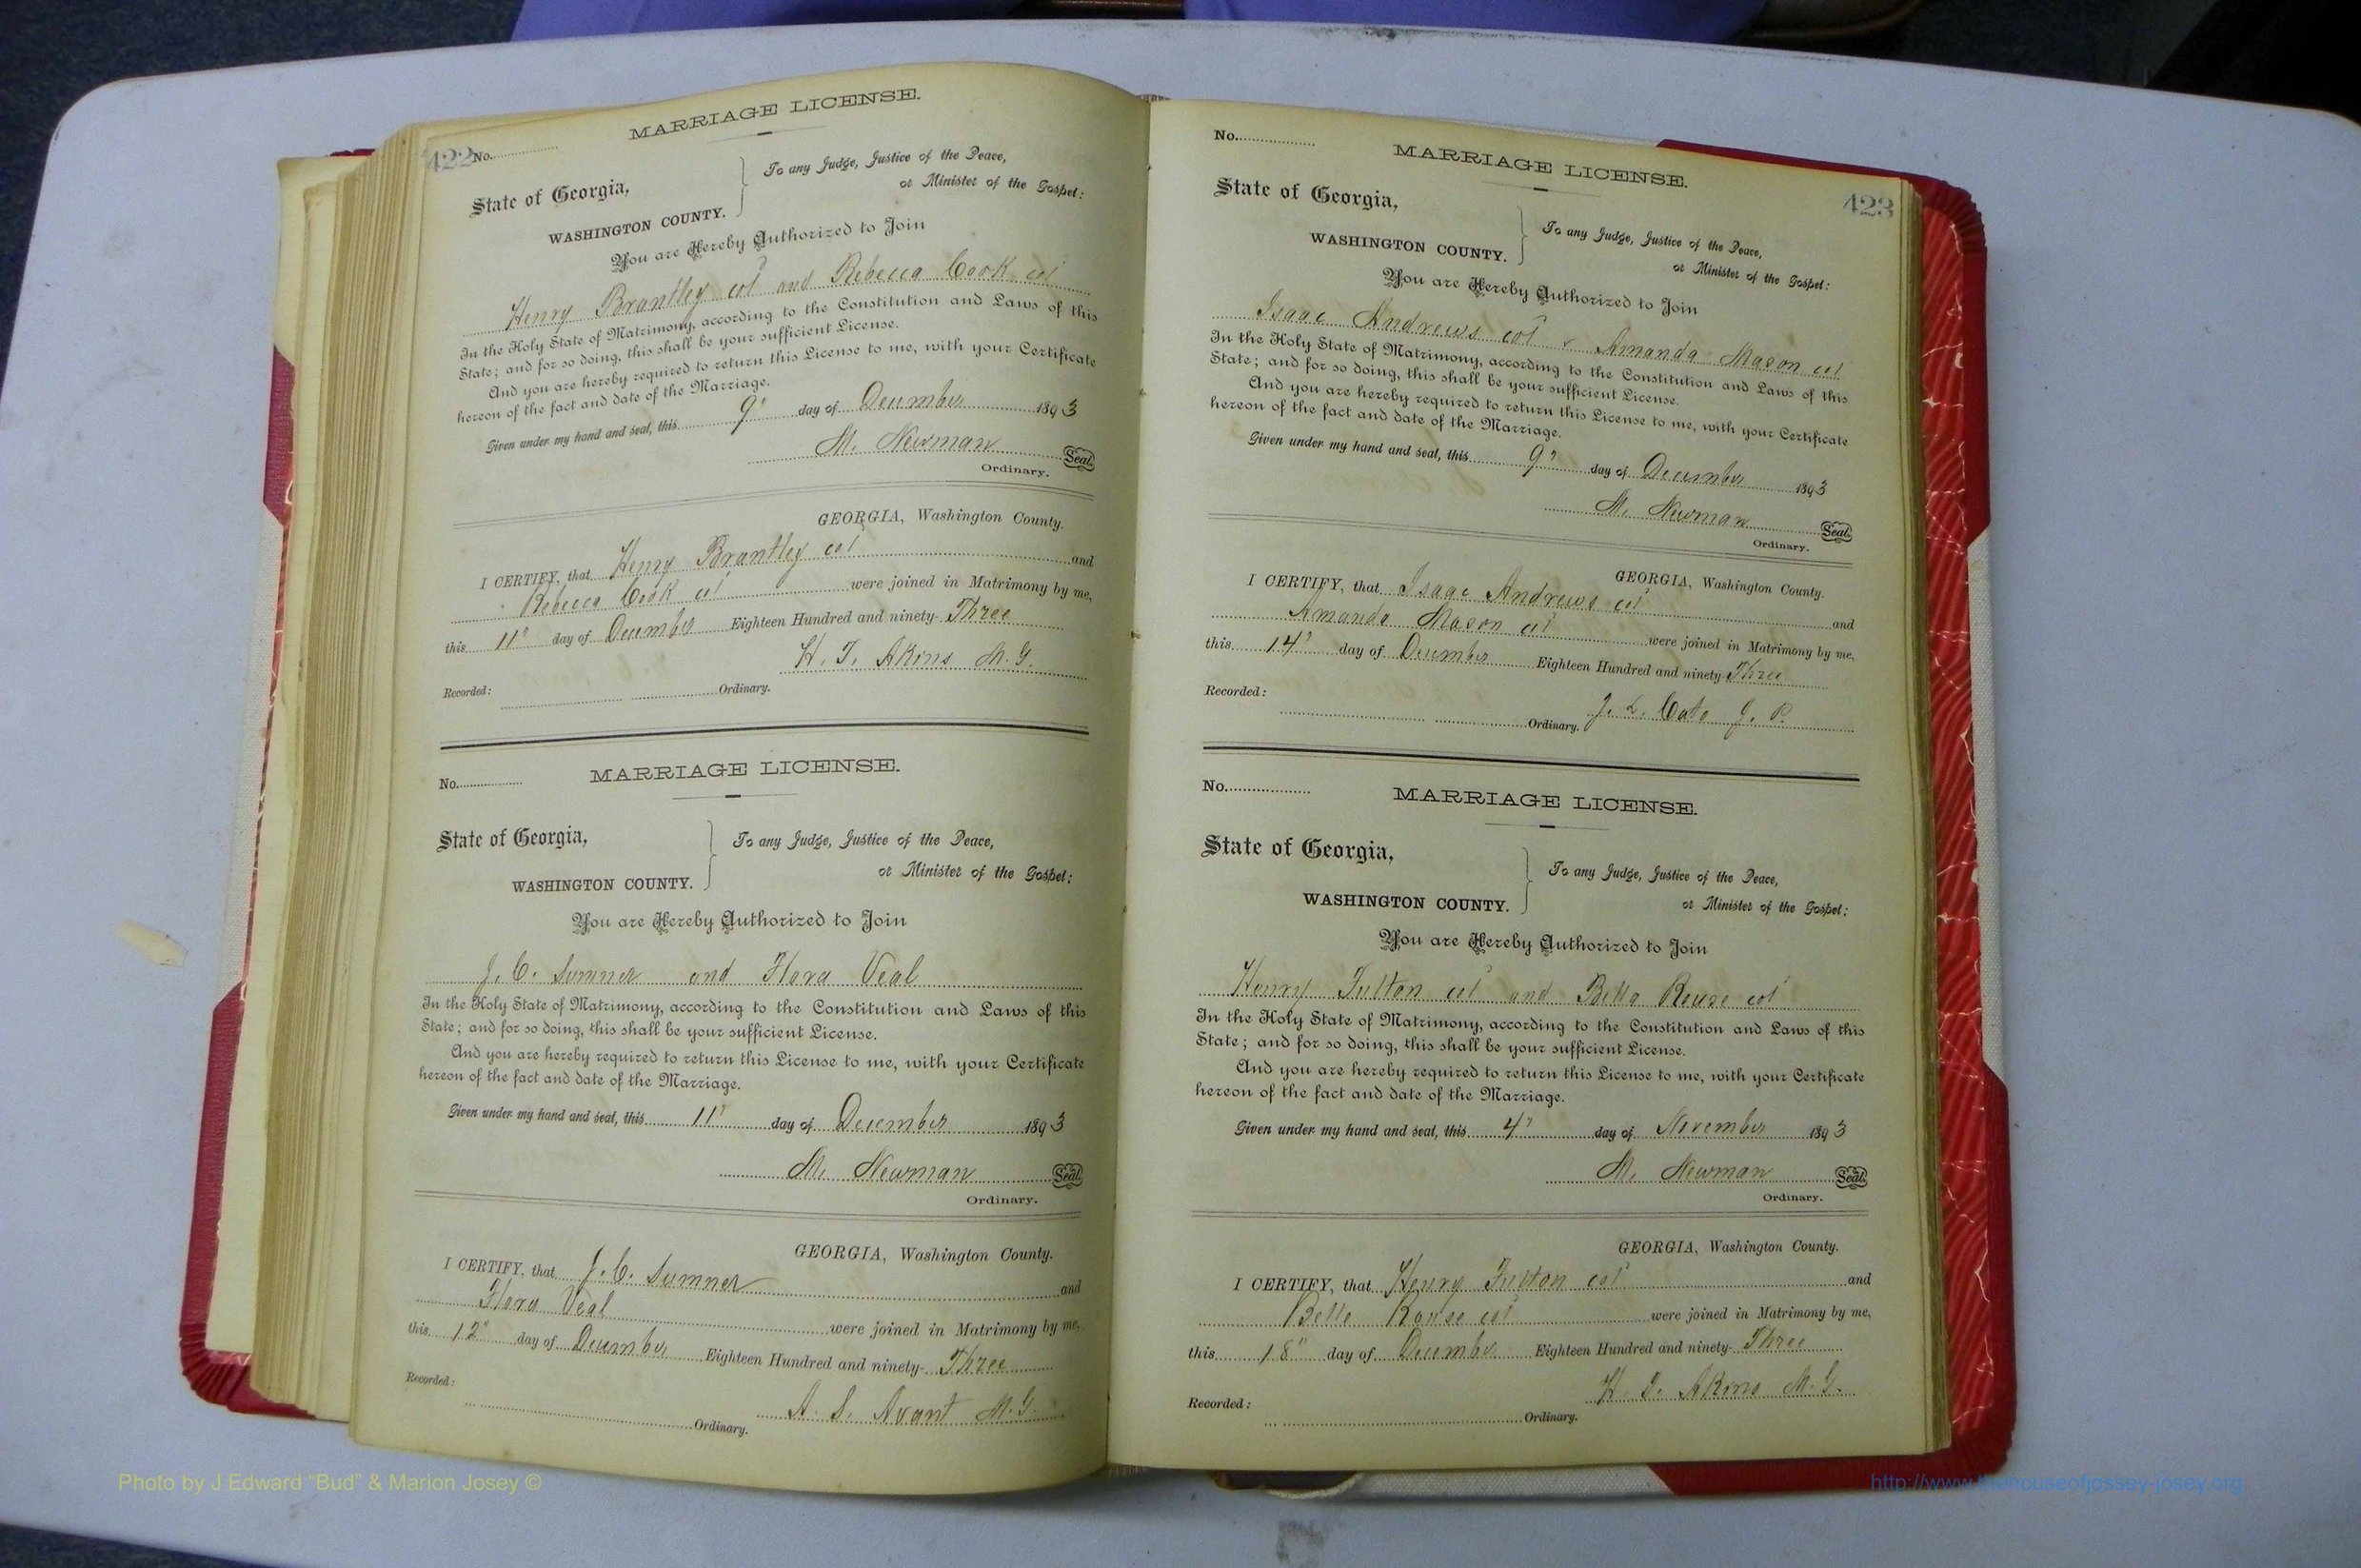 422
No.
MARRIAGE LICENSE.
State of Georgia,
WASHINGTON COUNTY.
To any Judge, Justice of the Peace,
or Minister of the Gospel:
You are Hereby Authorized to Join
Henry Brantley col and Rebecca Cook col
In the Holy State of Matrimony, according to the Constitution and Laws of this
State; and for so doing, this shall be your sufficient License.
And you are hereby required to return this License to me, with your Certificate
hereon of the fact and date of the Marriage.
Given under my hand and seal, this 9" day of December 1893
M. Newman Seal.
Ordinary.
GEORGIA, Washington County.
I CERTIFY, that Henry Brantley col and
Rebecca Cook col were joined in Matrimony by me,
this 11" day of December Eighteen Hundred and ninety- Three
H. T. Akins M. G.
Recorded: Ordinary.
No.
MARRIAGE LICENSE.
State of Georgia,
WASHINGTON COUNTY.
To any Judge, Justice of the Peace,
or Minister of the Gospel:
You are Hereby Authorized to Join
J. C. Sumner and Flora Veal
In the Holy State of Matrimony, according to the Constitution and Laws of this
State; and for so doing, this shall be your sufficient License.
And you are hereby required to return this License to me, with your Certificate
hereon of the fact and date of the Marriage.
Given under my hand and seal, this 11" day of December 1893
M. Newman Seal.
Ordinary.
GEORGIA, Washington County.
I CERTIFY, that J. C. Sumner and
Flora Veal were joined in Matrimony by me,
this 12" day of December Eighteen Hundred and ninety- Three
A. S. Avant M. G.
Recorded: Ordinary.
No.
MARRIAGE LICENSE.
423
State of Georgia,
WASHINGTON COUNTY.
To any Judge, Justice of the Peace,
or Minister of the Gospel:
You are Hereby Authorized to Join
Isaac Andrews col & Amanda Mason col
In the Holy State of Matrimony, according to the Constitution and Laws of this
State; and for so doing, this shall be your sufficient License.
And you are hereby required to return this License to me, with your Certificate
hereon of the fact and date of the Marriage.
Given under my hand and seal, this 9" day of December 1893
M. Newman Seal.
Ordinary.
GEORGIA, Washington County.
I CERTIFY, that Isaac Andrews col and
Amanda Mason col were joined in Matrimony by me,
this 14" day of December Eighteen Hundred and ninety- Three
J. L. Cato J. P.
Recorded: Ordinary.
No.
MARRIAGE LICENSE.
State of Georgia,
WASHINGTON COUNTY.
To any Judge, Justice of the Peace,
or Minister of the Gospel:
You are Hereby Authorized to Join
Henry Fulton col and Bella Rouse col
In the Holy State of Matrimony, according to the Constitution and Laws of this
State; and for so doing, this shall be your sufficient License.
And you are hereby required to return this License to me, with your Certificate
hereon of the fact and date of the Marriage.
Given under my hand and seal, this 4" day of November 1893
M. Newman Seal.
Ordinary.
GEORGIA, Washington County.
I CERTIFY, that Henry Fulton col and
Bella Rouse col were joined in Matrimony by me,
this 18" day of December Eighteen Hundred and ninety- Three
H. T. Akins M. G.
Recorded: Ordinary.
Photo by J Edward “Bud” & Marion Josey ©
http://www.thehouseofjossey-josey.org